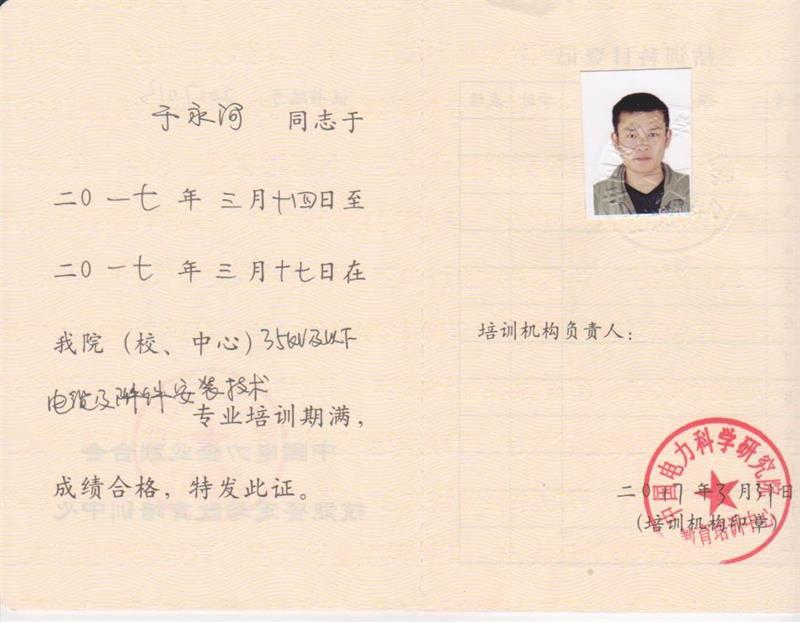 于永河 同志于
二〇一七 年 三月十四日至
二〇一七 年 三月十七日在
我院（校、中心）35kV及以下
电缆及附件安装技术
专业培训期满，
成绩合格，特发此证。
培训机构负责人：
中国电力科学研究院
二〇一7年3月31日
（培训机构印章）
教育培训中心